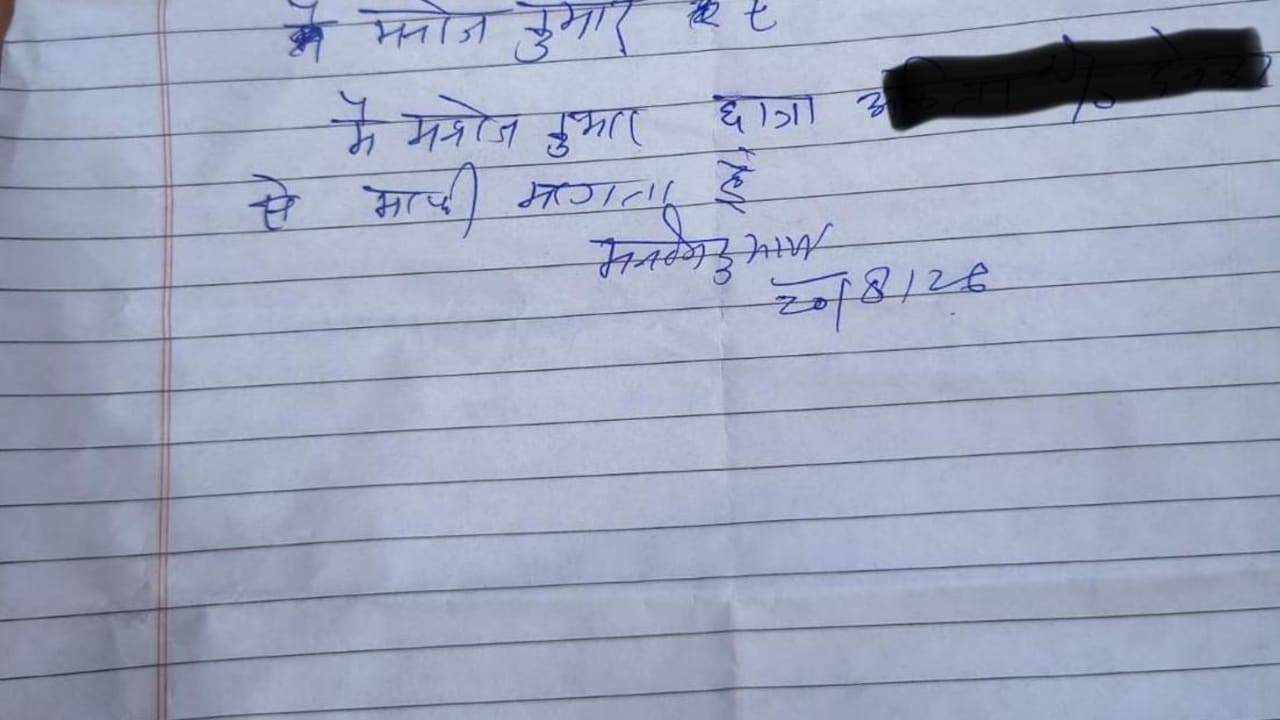 मै मनोज कुमार
मै मनोज कुमार छात्रा
से माफी मागता हूँ
मनोज कुमार
20/8/26